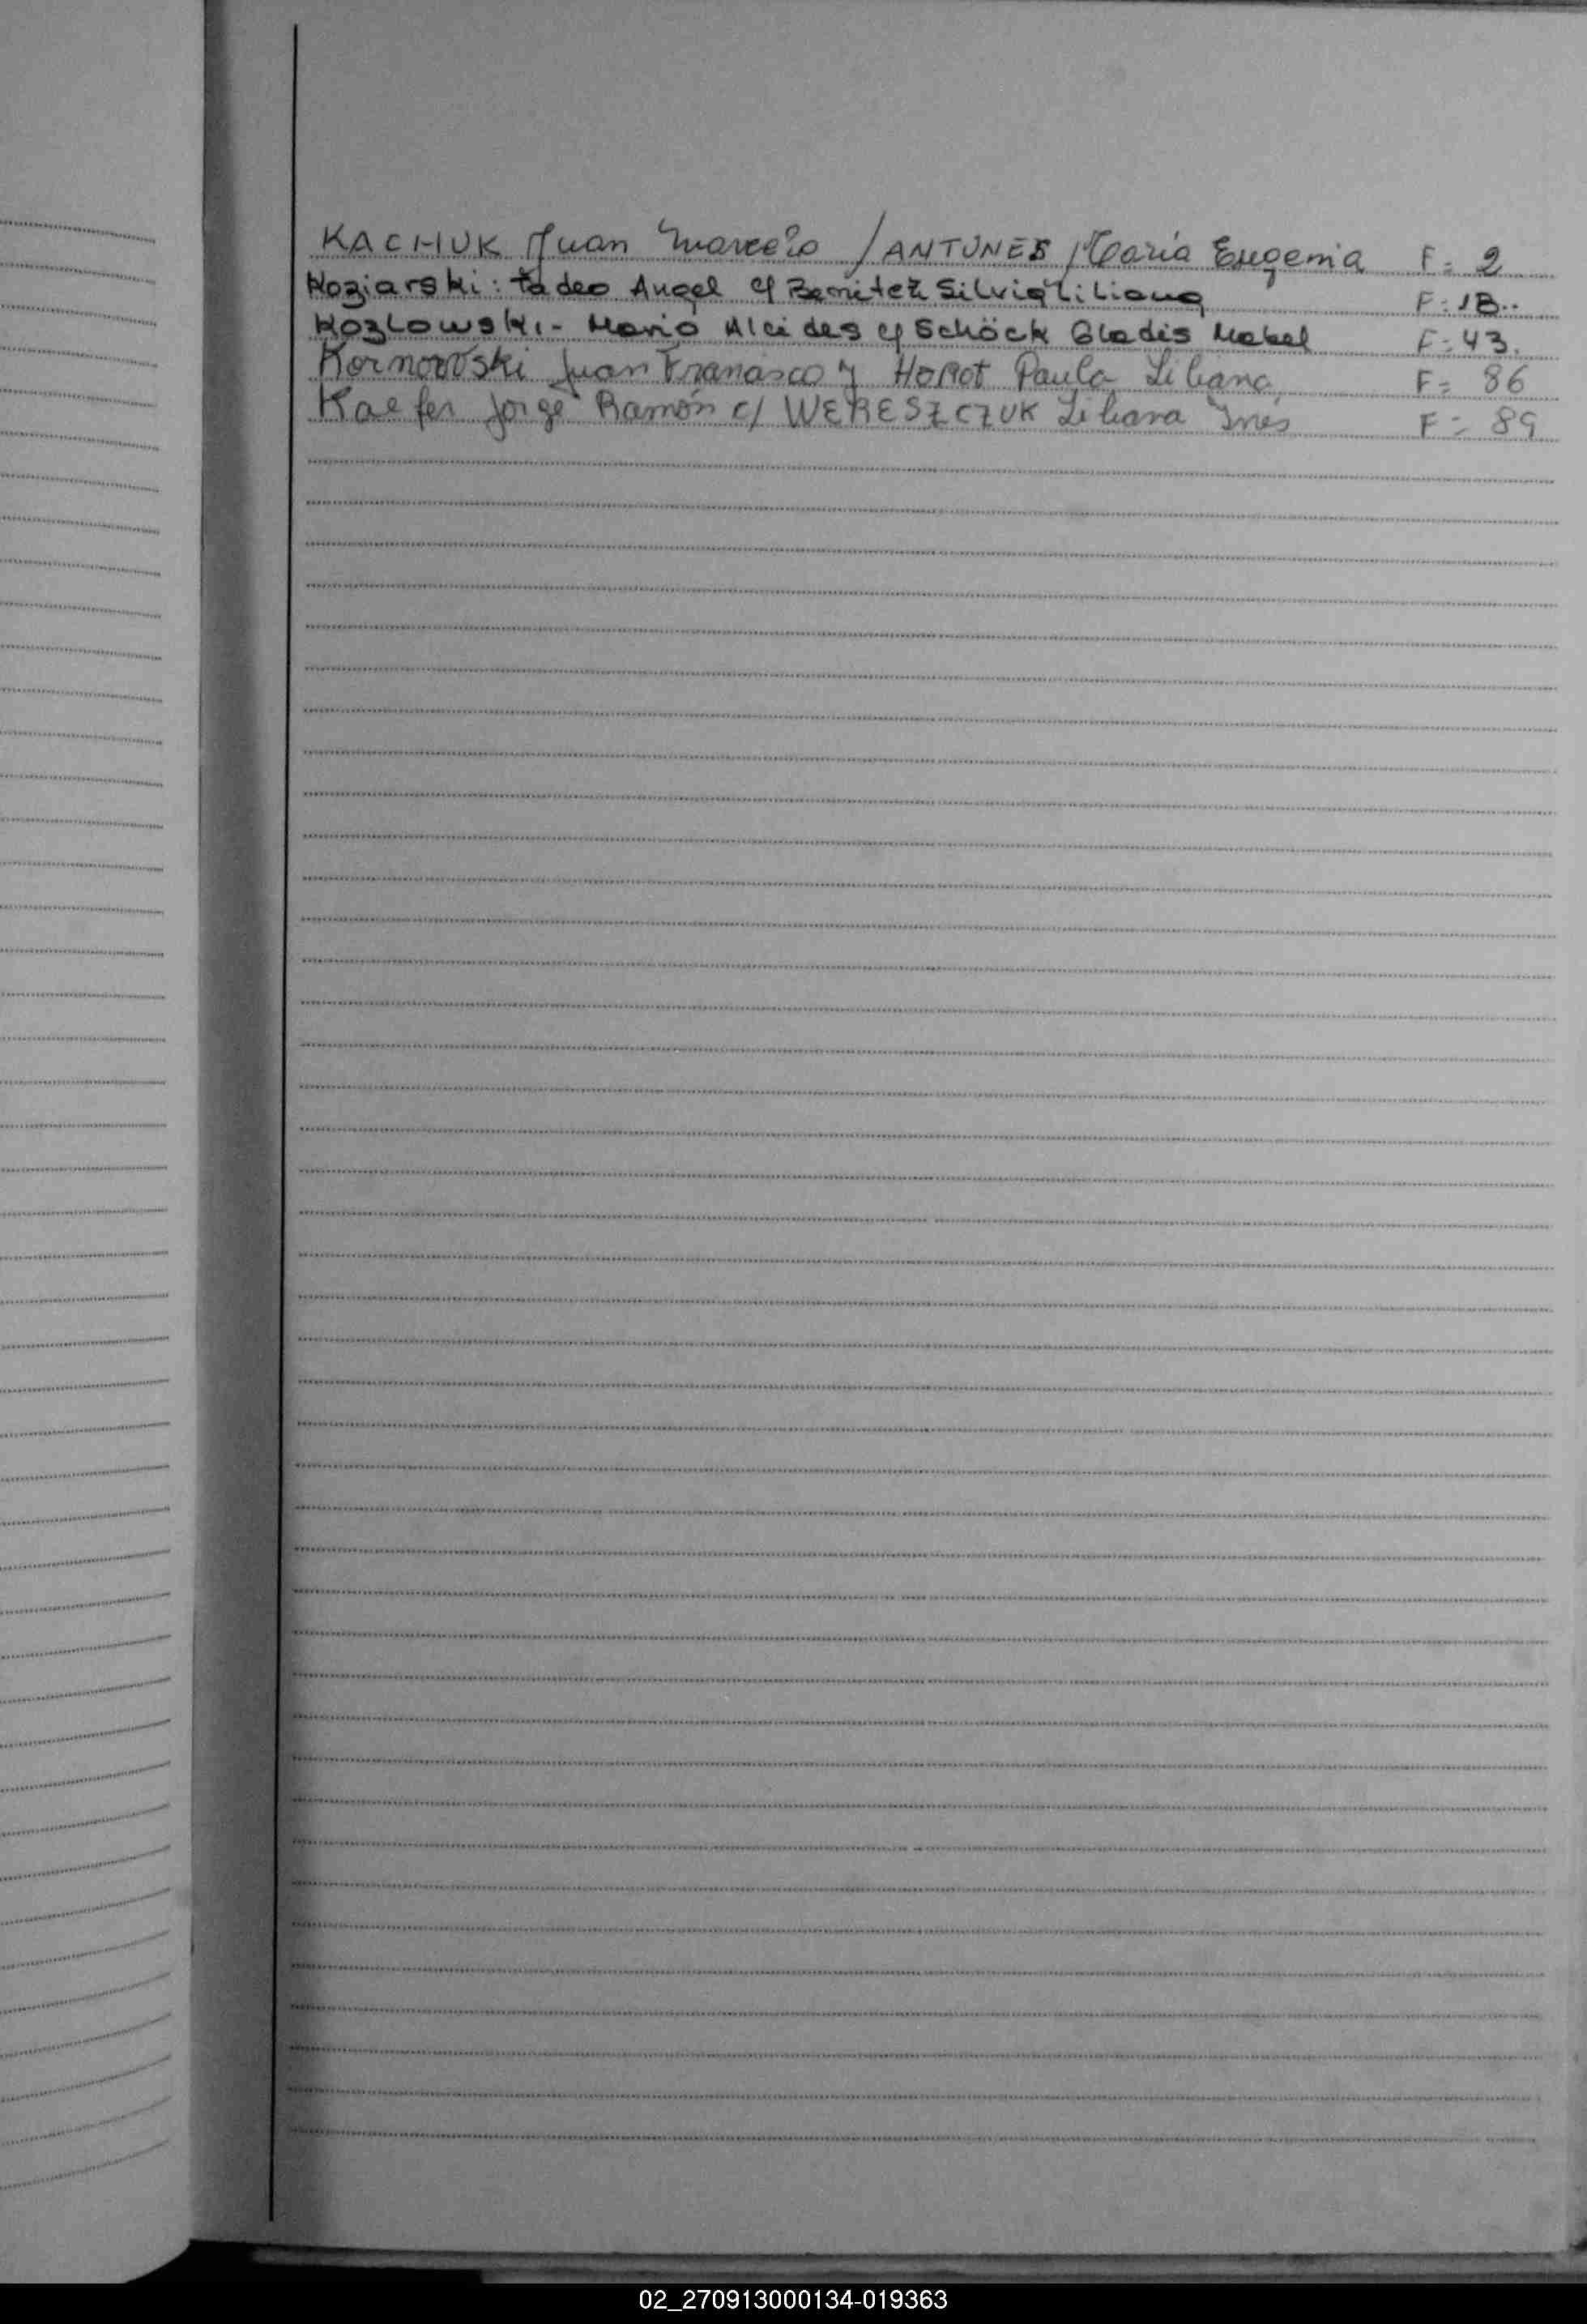 KACHUK Juan Marcelo / ANTUNES María Eugenia F= 2
Koziarski: tadeo Angel c/ Benitez Silvia Liliana F=18..
Kozlowski- Mario Alcides c/ Schöck Gladis Mabel F=43.
Kornowski Juan Francisco y HoRot Paula Liliana F= 86
Kaefer Jorge Ramón c/ WERESZCZUK Liliana Inés F= 89
02_270913000134-019363